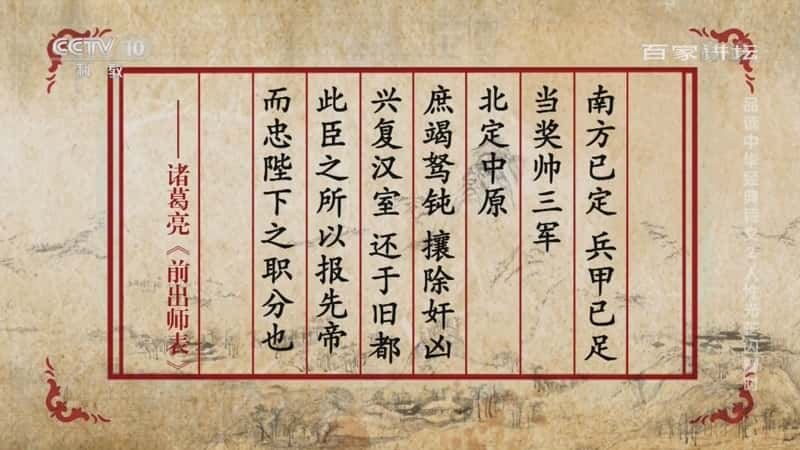 CCTV 10
科教
百家讲坛
南方已定 兵甲已足
当奖帅三军
北定中原
庶竭驽钝 攘除奸凶
兴复汉室 还于旧都
此臣之所以报先帝
而忠陛下之职分也
——诸葛亮《前出师表》
品读中华经典诗文